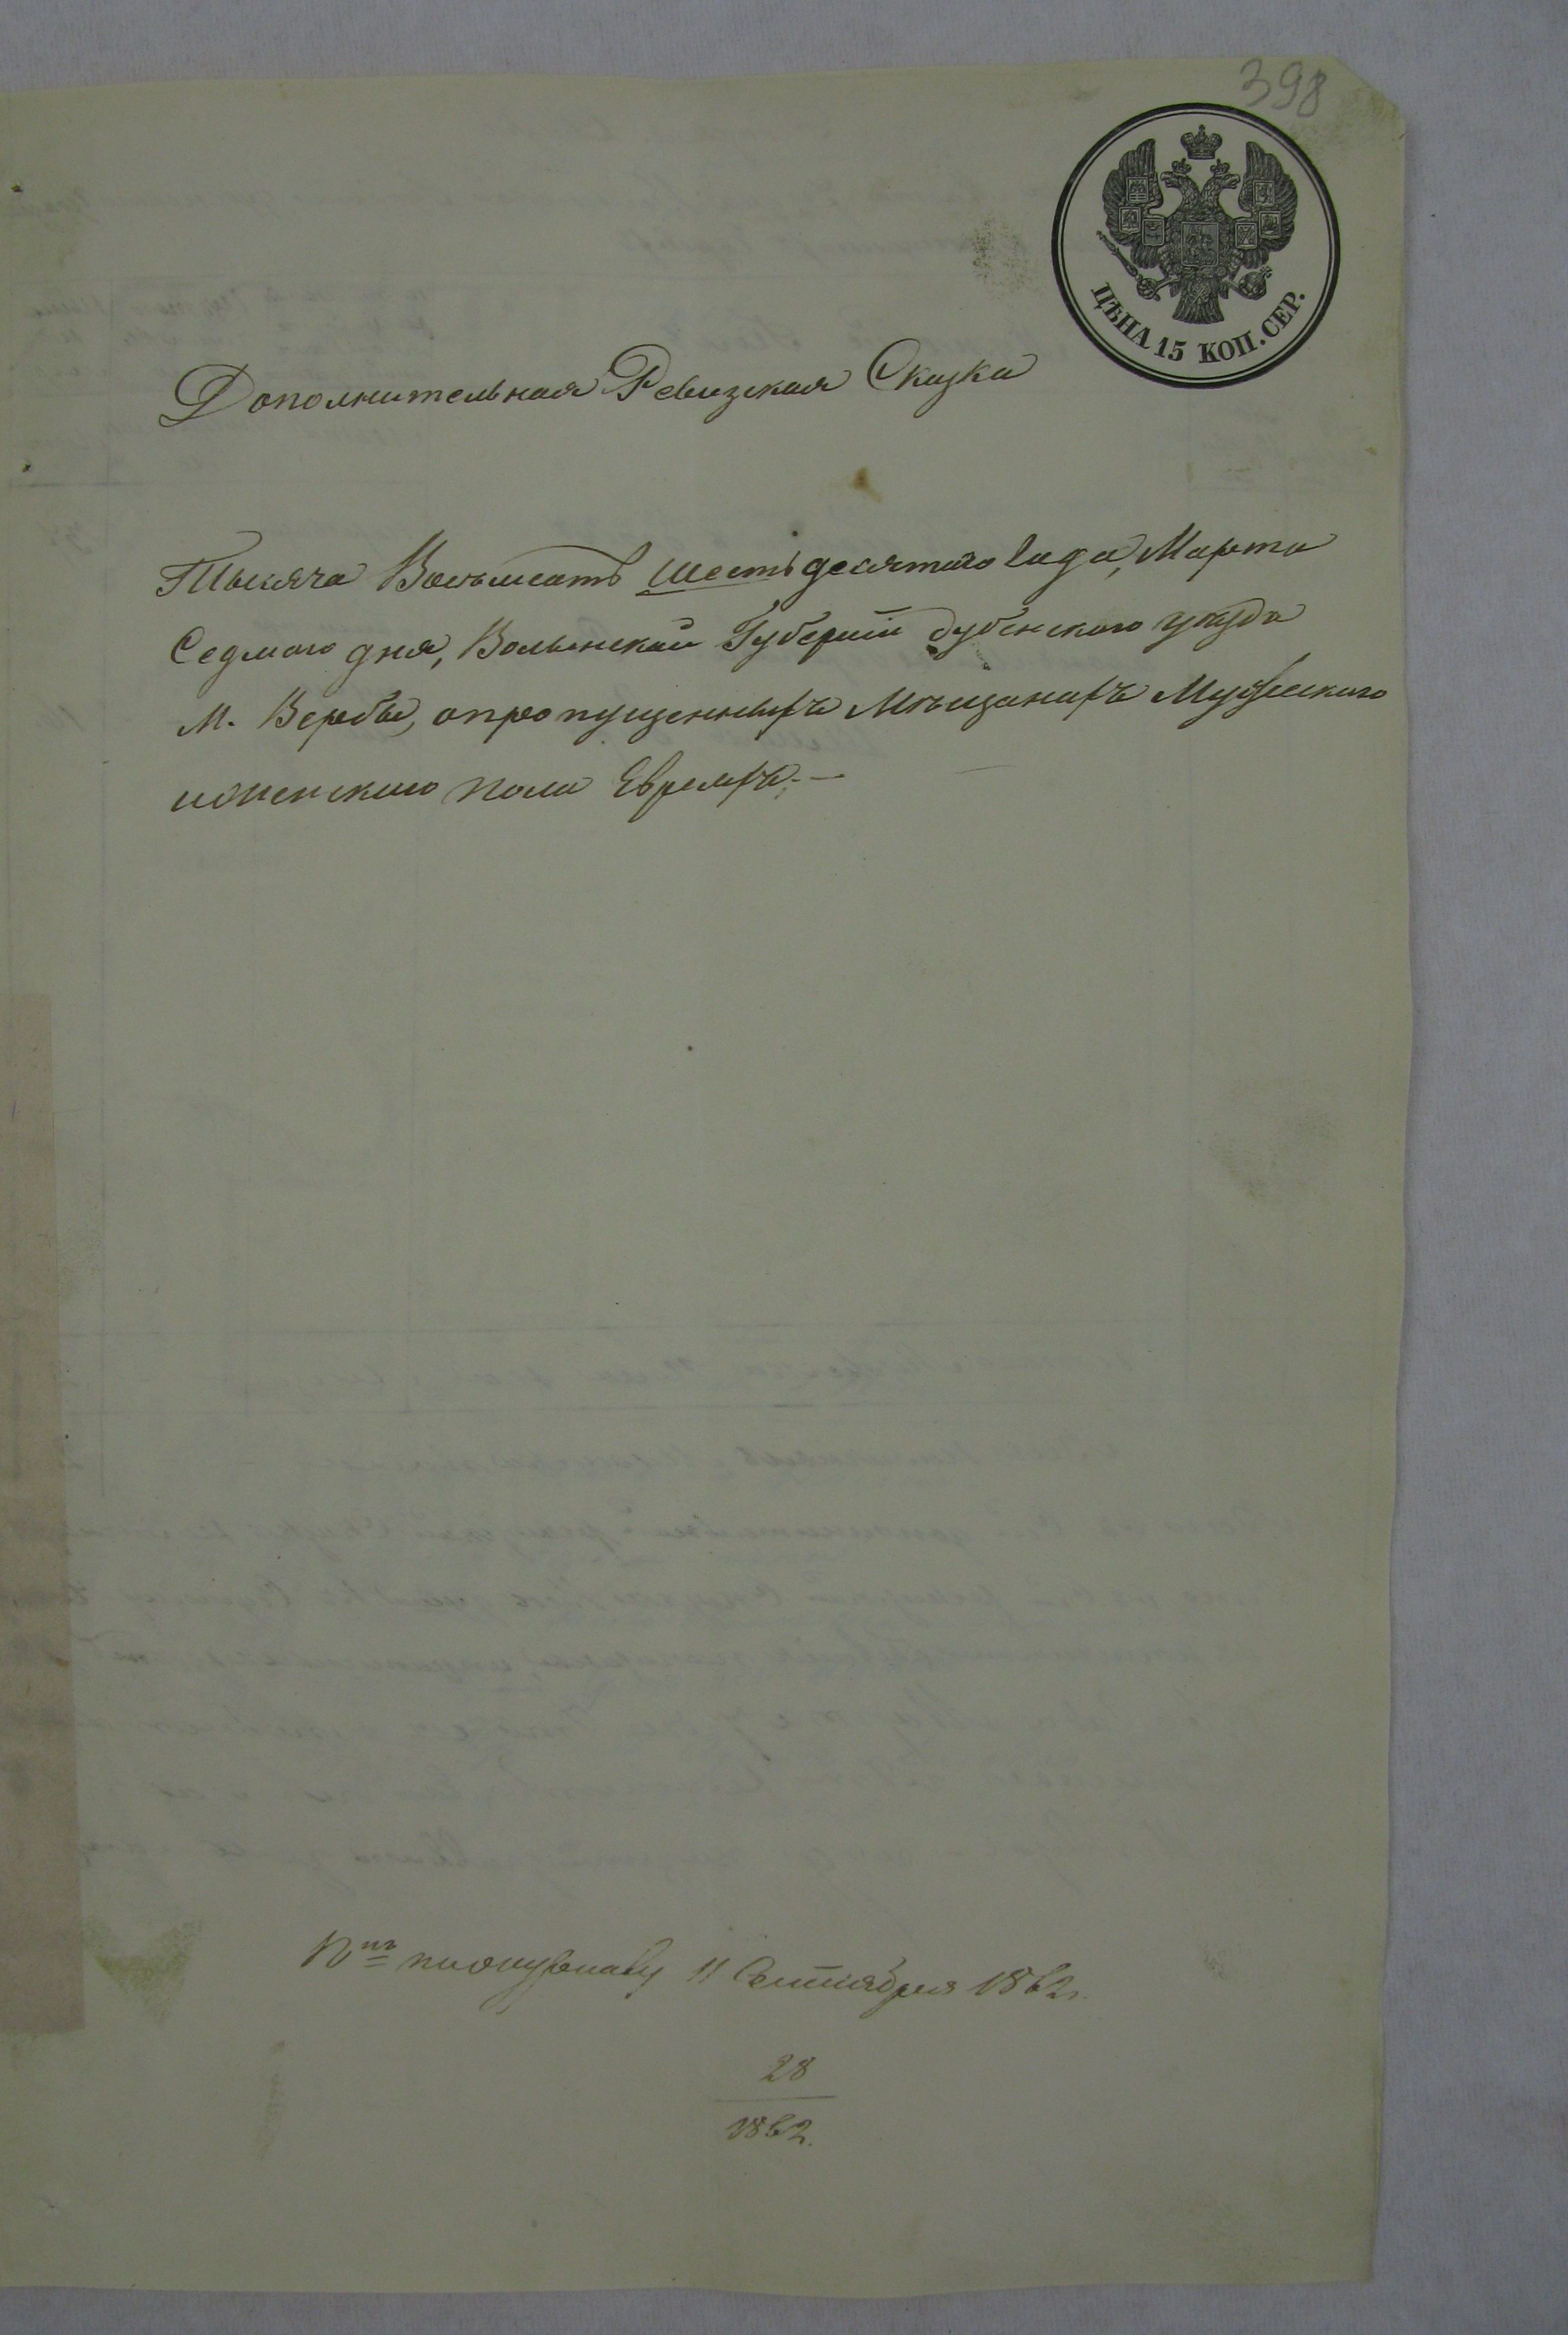 398
ЦѢНА 15 КОП. СЕР.
Дополнительная Ревизская Сказка
Тысяча Восьмсотъ шестьдесятого года, Марта
Седмого дня, Волынской Губерніи дубенского уезда
М. Вербы, опропущенныхъ Мѣщанахъ Мужеского
иженского пола Евреяхъ.—
11 Сентября 1862г.
28
1862.